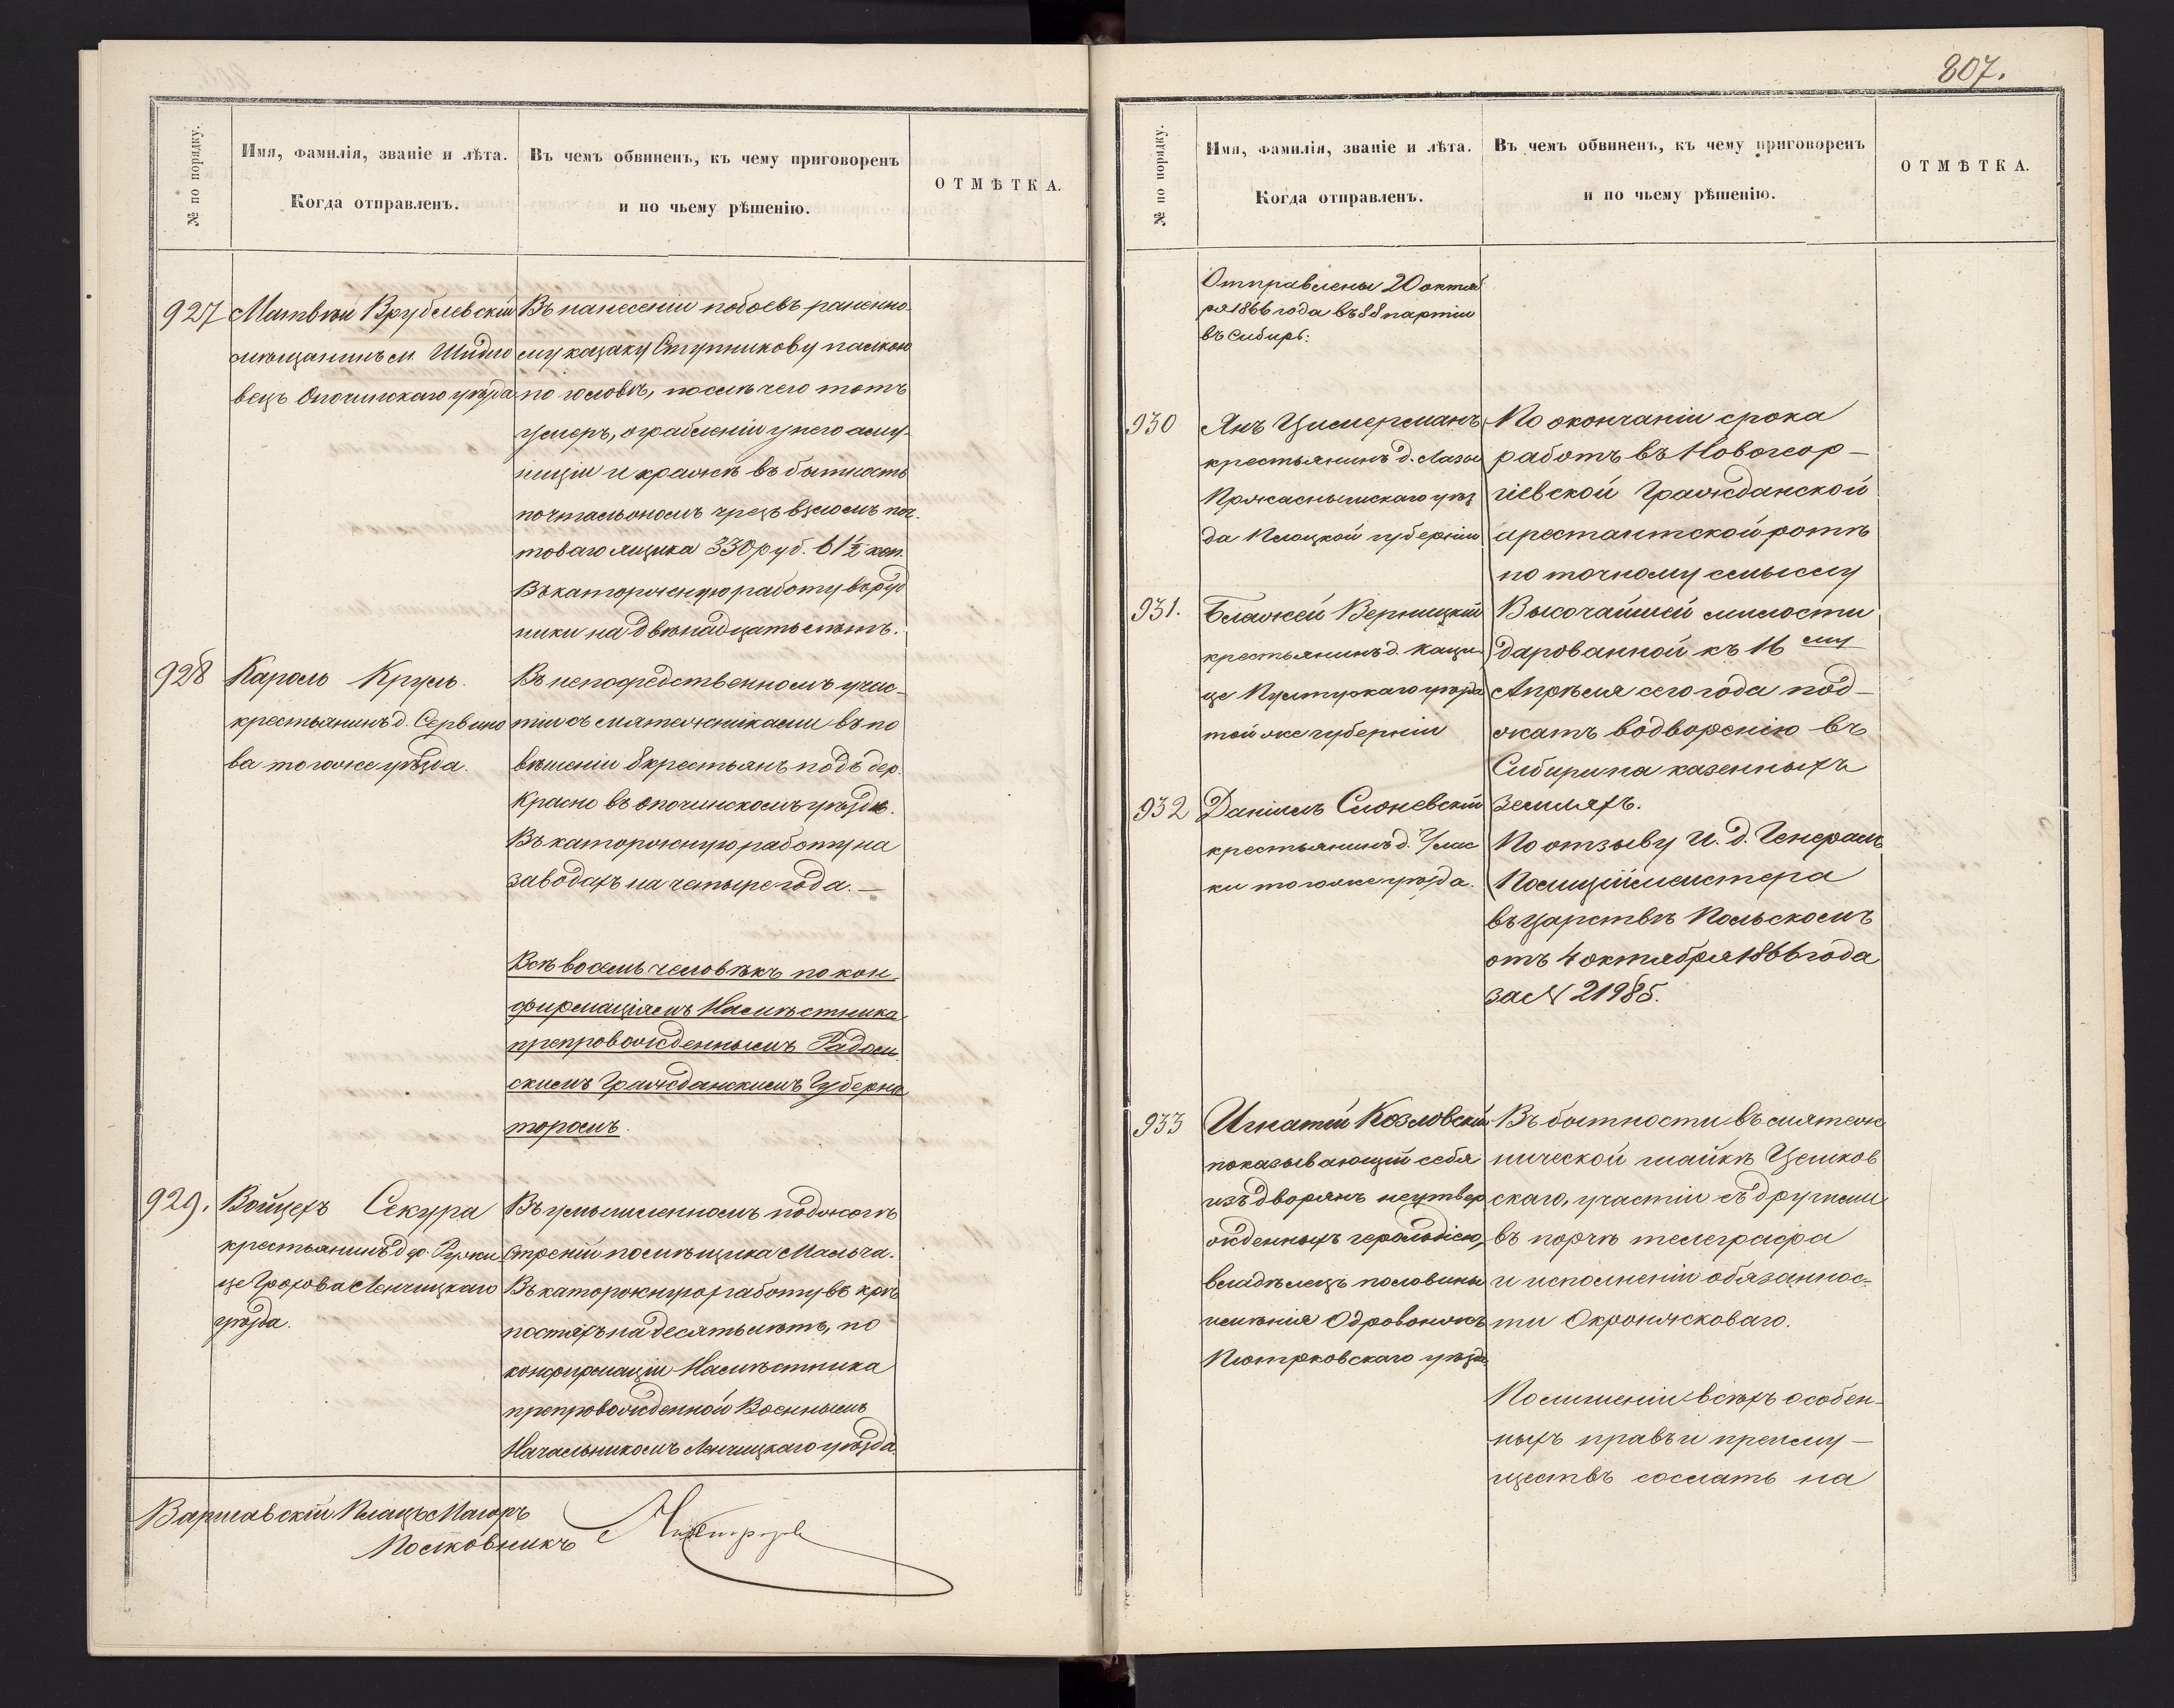 № по порядку.
Имя, фамилія, званіе и лѣта.
Когда отправленъ.
Въ чемъ обвиненъ, къ чему приговоренъ
и по чьему рѣшенію.
ОТМѢТКА.
927
Матвѣй Врублевскій
мѣщанинъ м. Шидло
вецъ Опочинскаго уѣзда
Въ нанесеніи побоевъ раненно-
му казаку Ступникову палкою
по головѣ, послѣ чего тотъ
умеръ, ограбленіи у него аму-
ниціи и кражѣ въ бытность
почтальономъ чрезъ взломъ поч-
товаго ящика 330 руб. 61½ коп.
Въ каторжную работу въ руд
ники на двѣнадцать лѣтъ.
928
Кароль Круль.
крестьянинъ д. Сервино
ва того же уѣзда.
Въ непосредственномъ учас-
тіи съ мятежниками въ по
вѣшеніи 8 крестьянъ подъ дер.
Красно въ опочинскомъ уѣздѣ.
Въ каторжную работу на
заводахъ на четыре года. —
Всѣ восемь человѣкъ по кон-
фирмаціямъ Намѣстника
препровожденнымъ Радом.
скимъ Гражданскимъ Губерна
торомъ.
929.
Войцехъ Секура
крестьянинъ д.
Ленчицкаго
уѣзда.
Въ умышленномъ поджогѣ
строеній помѣщика Мальча.
Въ каторжную работу въ крѣ
постяхъ на десять лѣтъ, по
конфирмаціи Намѣстника
препровожденной Военнымъ
Начальникомъ Ленчицкаго уѣзда
Варшавскій Плацъ Маіоръ
Полковникъ
807.
№ по порядку.
Имя, фамилія, званіе и лѣта.
Когда отправленъ.
Въ чемъ обвиненъ, къ чему приговоренъ
и по чьему рѣшенію.
ОТМѢТКА.
Отправлены 20 октяб
ря 1866 года въ 88 партіи
въ Сибирь:
930
Янъ Цимерманъ
крестьянинъ д. Лазы
Пржаснышскаго уѣз
да Плоцкой губерніи
931.
Блажей Верницкій
крестьянинъ д. Каци
це Пултускаго уѣзда
той же губерніи
932
Даніилъ Слоневскій
крестьянинъ д. Улас
ки того же уѣзда.
По окончаніи срока
работъ въ Новогеор-
гіевской Гражданской
арестантской ротѣ
по точному смыслу
Высочайшей милости
дарованной къ 16 му
Апрѣля сего года под-
жатъ водворенію въ
Сибири на казенныхъ
земляхъ.
По отзыву И. д. Генералъ
Полиціймейстера
въ царствѣ Польскомъ
отъ 4 октября 1866 года
за № 21985.
933
Игнатій Козловскій
показывающій себя
изъ дворянъ неутвер
жденныхъ герольдіею,
владѣлецъ половины
имѣнія Одровонжъ
Піотрковскаго уѣзда
Въ бытности въ мятеж
нической шайкѣ Цешков
скаго, участіи съ другими
въ порчѣ телеграфа
и исполненіи обязаннос-
ти Окронжковаго.
По лишеніи всѣхъ особен-
ныхъ правъ и преиму-
ществъ сослать на